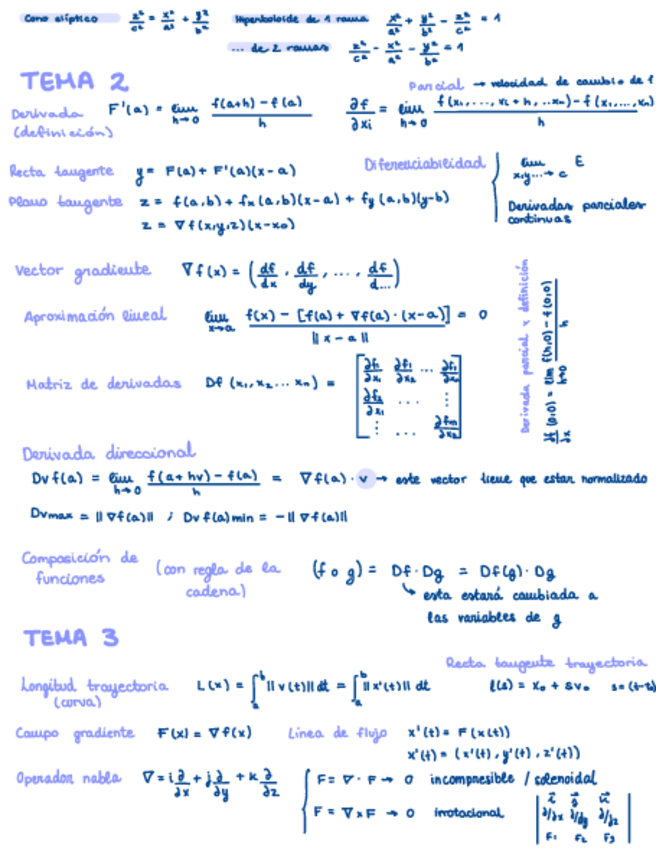 Cono elíptico z²/c² = x²/a² + y²/b² Hiperboloide de 1 rama x²/a² + y²/b² - z²/c² = 1
... de 2 ramas z²/c² - x²/a² - y²/b² = 1
TEMA 2
Parcial → velocidad de cambio de f
Derivada (definición) F'(a) = lim h→0 f(a+h) - f(a) / h ∂f/∂xi = lim h→0 f(x₁, ..., xi + h, ..xn) - f(x₁,...,xn) / h
Recta tangente y = F(a) + F'(a)(x-a) Diferenciabilidad lim x,y...→c E
Plano tangente z = f(a,b) + fx(a,b)(x-a) + fy(a,b)(y-b) Derivadas parciales continuas
z = ∇f(x,y,z)(x-x₀)
Vector gradiente ∇f(x) = (df/dx, df/dy, ..., df/d...)
Aproximación lineal lim x→a f(x) - [f(a) + ∇f(a)·(x-a)] / ||x-a|| = 0
Derivada parcial x definición
∂f/∂x (0,0) = lim h→0 f(h,0) - f(0,0) / h
Matriz de derivadas Df (x₁, x₂... xn) = [∂f₁/∂x₁ ∂f₁/∂x₂ ... ∂f₁/∂xn
∂f₂/∂x₁ ... ⋮
⋮ ... ∂fm/∂xn]
Derivada direccional
Dv f(a) = lim h→0 f(a+hv) - f(a) / h = ∇f(a) · v → este vector tiene que estar normalizado
Dvmax = ||∇f(a)|| ; Dv f(a) min = -||∇f(a)||
Composición de funciones (con regla de la cadena) (f o g) = Df · Dg = Df(g) · Dg
esta estará cambiada a
las variables de g
TEMA 3
Recta tangente trayectoria
Longitud trayectoria (curva) L(x) = ∫ₐᵇ ||v(t)|| dt = ∫ₐᵇ ||x'(t)|| dt l(s) = x₀ + sv₀ s=(t-t₀)
Campo gradiente F(x) = ∇f(x) Línea de flujo x'(t) = F(x(t))
x'(t) = (x'(t), y'(t), z'(t))
Operador nabla ∇ = i ∂/∂x + j ∂/∂y + k ∂/∂z F = ∇ · F → 0 incompresible / solenoidal
F = ∇ x F → 0 irrotacional
∂/∂x ∂/∂y ∂/∂z
F₁ F₂ F₃